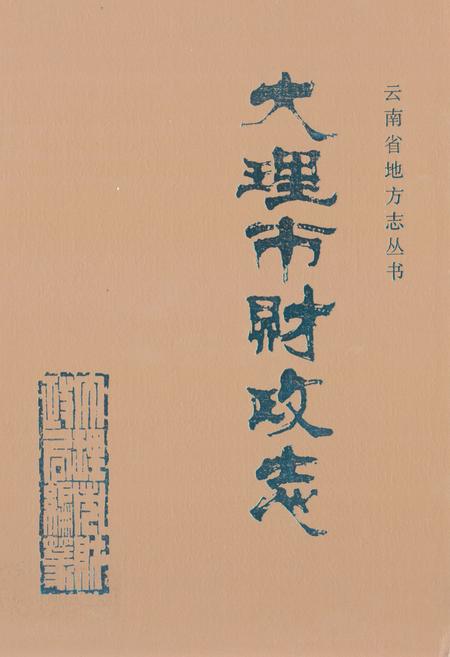 云南省地方志丛书
大理市财政志
大理市财
政局编纂